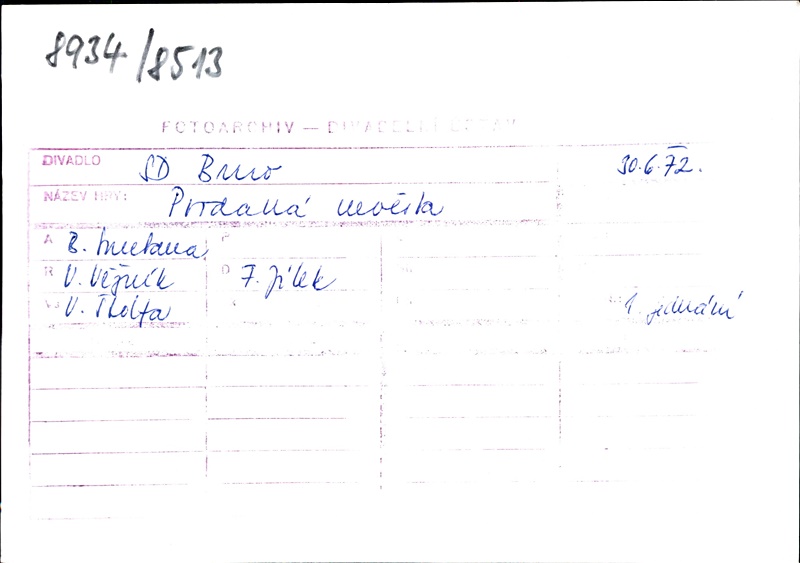 8934/8513
FOTOARCHIV – DIVADELNÍ ÚSTAV
DIVADLO SD Brno 30.6.72.
NÁZEV HRY: Prodaná nevěsta
A B. Smetana
R V. Věžník D F. Jílek
V. Štolfa 1. jednání